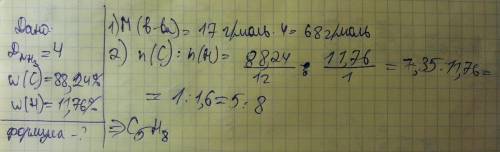 Дано:
D NH₃ = 4
w(C)=88,24%
w(H)=11,76%
формула - ?
1) M(в-ва) = 17 г/моль · 4 = 68 г/моль
2) n(C) : n(H) = 88,24/12 : 11,76/1 = 7,35:11,76=
= 1:1,6=5:8
⇒ C₅H₈